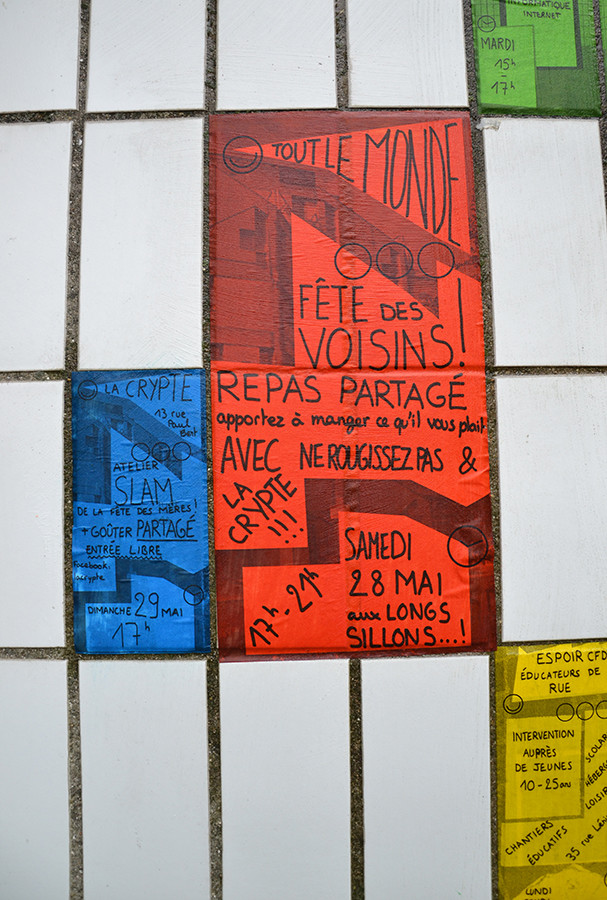 INFORMATIQUE
INTERNET
MARDI
15h
-
17h
TOUT LE MONDE
FÊTE DES
VOISINS!
REPAS PARTAGÉ
apportez à manger ce qu'il vous plait
AVEC NE ROUGISSEZ PAS &
LA
CRYPTE
!!!
17h - 21h
SAMEDI
28 MAI
aux LONGS
SILLONS...!
LA CRYPTE
13 rue
Paul
Bert
ATELIER
SLAM
DE LA FÊTE DES MÈRES!
+ GOÛTER PARTAGÉ
ENTRÉE LIBRE
Facebook:
acrypte
DIMANCHE 29 MAI
17h
ESPOIR CFD
ÉDUCATEURS DE
RUE
INTERVENTION
AUPRÈS
DE JEUNES
10-25 ans
SCOLAR
HÉBERG
LOISIR
CHANTIERS
ÉDUCATIFS
35 rue
LUNDI